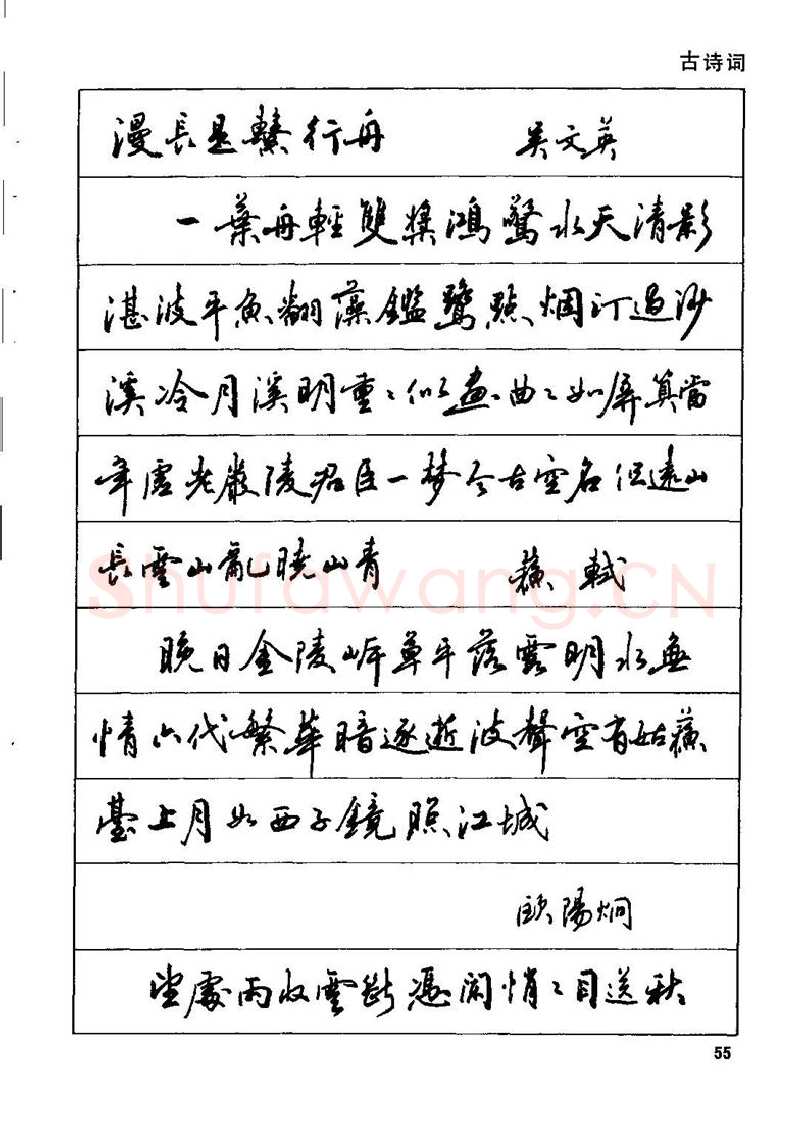 古诗词
漫長是繫行舟 吴文英
一葉舟輕雙槳鴻驚水天清影
湛波平魚翻藻鑑鷺點烟汀過沙
溪冷月溪明重〻似畫曲〻如屏算當
年虚老嚴陵君臣一梦今古空名但遠山
長雲山亂曉山青 蘇軾
晚日金陵岸草平落霞明水無
情六代繁華暗逐逝波聲空有姑蘇
臺上月如西子鏡照江城
欧陽炯
望處雨收雲斷憑闌悄〻目送秋
55
shufawang.CN